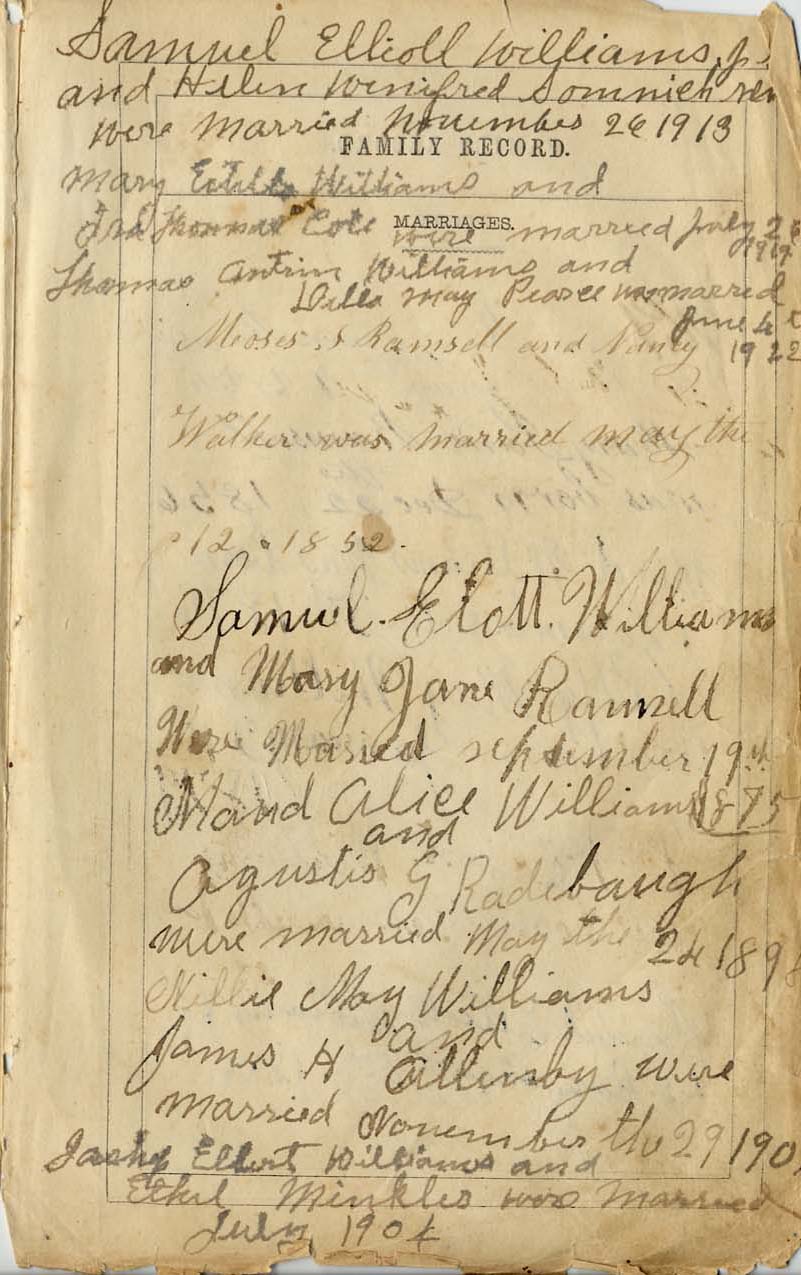 Samuel Elliott Williams, jr.
and Helen Winifred Somnichsen
were married November 26 1913
FAMILY RECORD.
Mary Williams and
MARRIAGES.
Ira Thomas Cole were married July 2
1919
Thomas Antrim Williams and
Della May Pearce married
June 4
Moses. S Ramsell and Nancy
1922
Walker was married may the
12 . 1852.
Samuel. Elott. Williams
and Mary Jane Ramsell
Were Maried september 19th
Maud Alice Williams 1875
and
Agustis G Radebaugh
were married May the 24 189
Millie May Williams
and
James H Allensby were
married November the 29 190
Elbert Williams and
Ethel Minkles was Married
July 1904